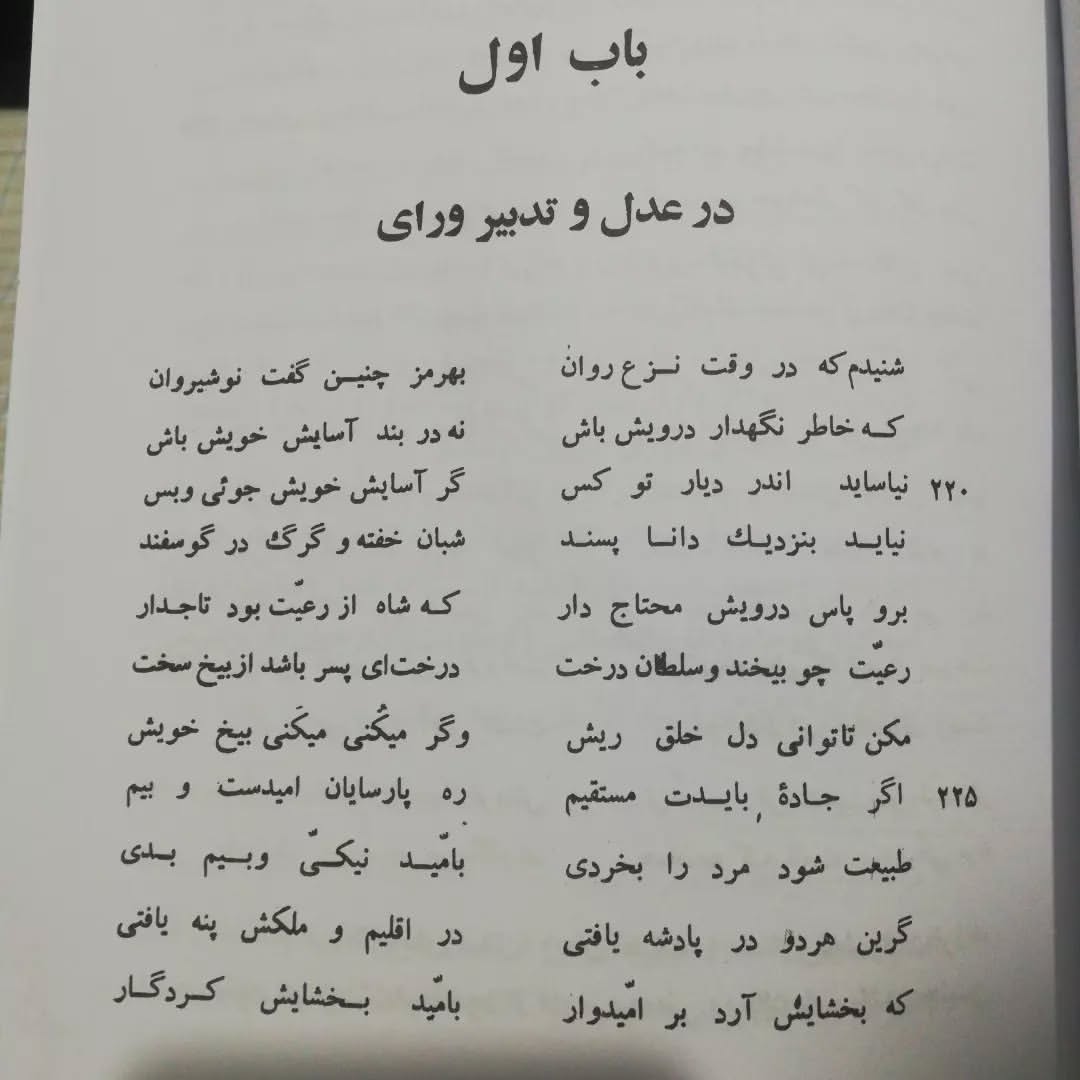 باب اول
در عدل و تدبیر ورای
شنیدم که در وقت نـزع روان بهرمز چنیـن گفت نوشیروان
کـه خاطر نگهدار درویش باش نه در بند آسایش خویش باش
۲۲۰ نیاساید اندر دیار تو کس گر آسایش خویش جوئی وبس
نیایـد بنزدیـك دانـا پسنـد شبان خفته و گرگ در گوسفند
برو پاس درویش محتاج دار کـه شاه از رعیّت بود تاجـدار
رعیّت چو بیخند و سلطان درخت درخت‌ای پسر باشد از بیخ سخت
مکن تاتوانی دل خلق ریش وگر میکُنی میکَنی بیخ خویش
۲۲۵ اگر جـادهٔ بایـدت مستقیم ره پارسایان امیدست و بیم
طبیعت شود مرد را بخردی بامّیـد نیکـیّ وبـیم بـدی
گرین هردو در پادشه یافتی در اقلیم و ملکش پنه یافتی
که بخشایش آرد بر امّیدوار بامّید بـخشایش کـردگـار